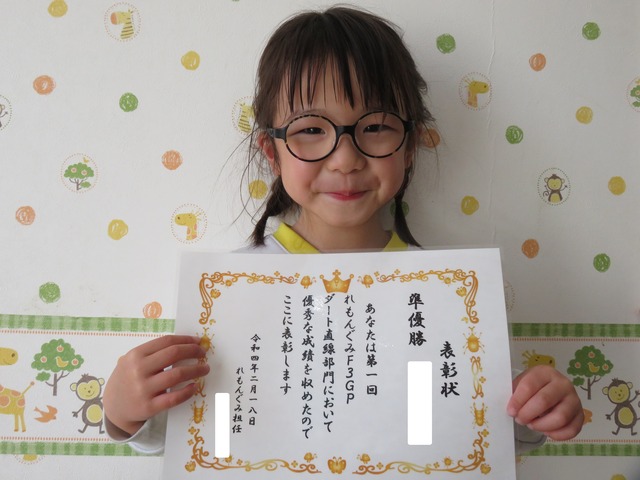 表彰状
準優勝
あなたは第一回
れもんぐみF3GP
ダート直線部門において
優秀な成績を収めたので
ここに表彰します
令和四年二月一八日
れもんぐみ担任